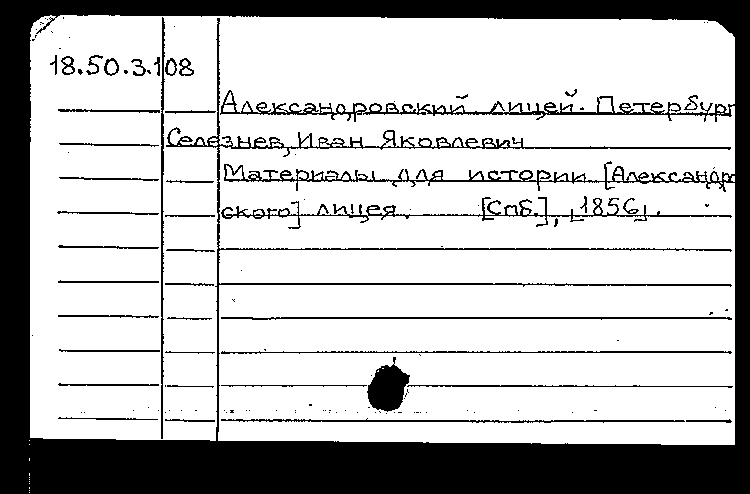 18.50.3.108
Александровский лицей. Петербург
Селезнев, Иван Яковлевич
Материалы для истории [Александров
ского] лицея. [Спб.], [1856].